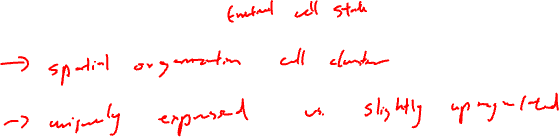 cell state
→ spatial organization cell cluster
→ uniquely expressed vs. slightly upregulated